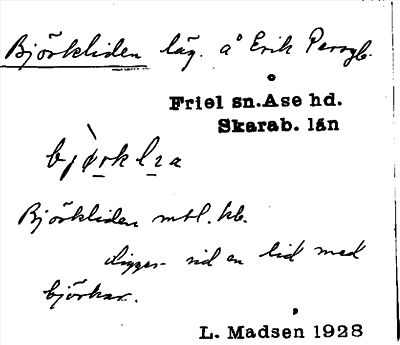 Björkliden läg. å Erik Persgb.
Friel sn. Åse hd.
Skarab. län
bjø̀rklɪa
Björkliden mtl. kb.
Ligger vid en lid med
björkar.
L. Madsen 1928